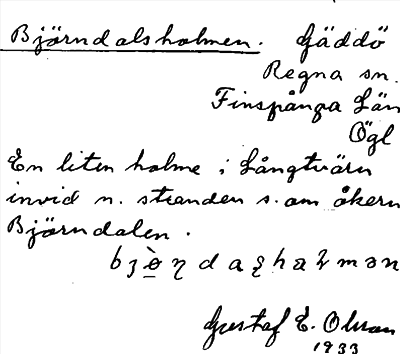 Björndalsholmen. Gäddö
Regna sn.
Finspånga Län
Ögl
En liten holme i Långtvärn
invid n. stranden s.om åkern
Björndalen.
Gustaf E. Olsson
1933